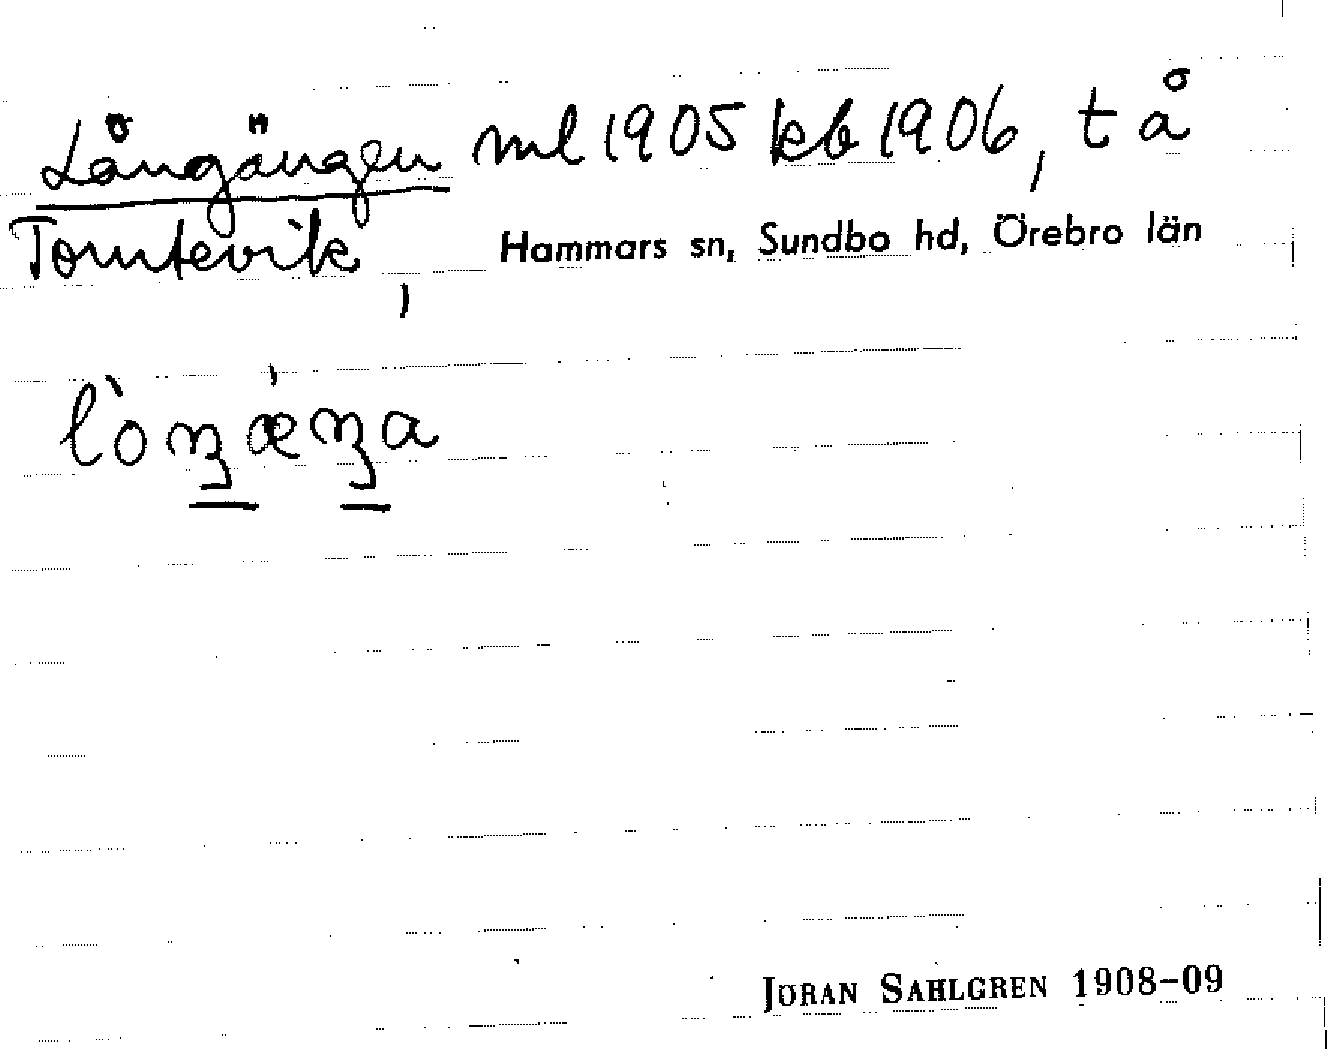 Långängen ml 1905 kb 1906, t å
Tomtevik, Hammars sn, Sundbo hd, Örebro län
lòŋǽŋa
JÖRAN SAHLGREN 1908–09